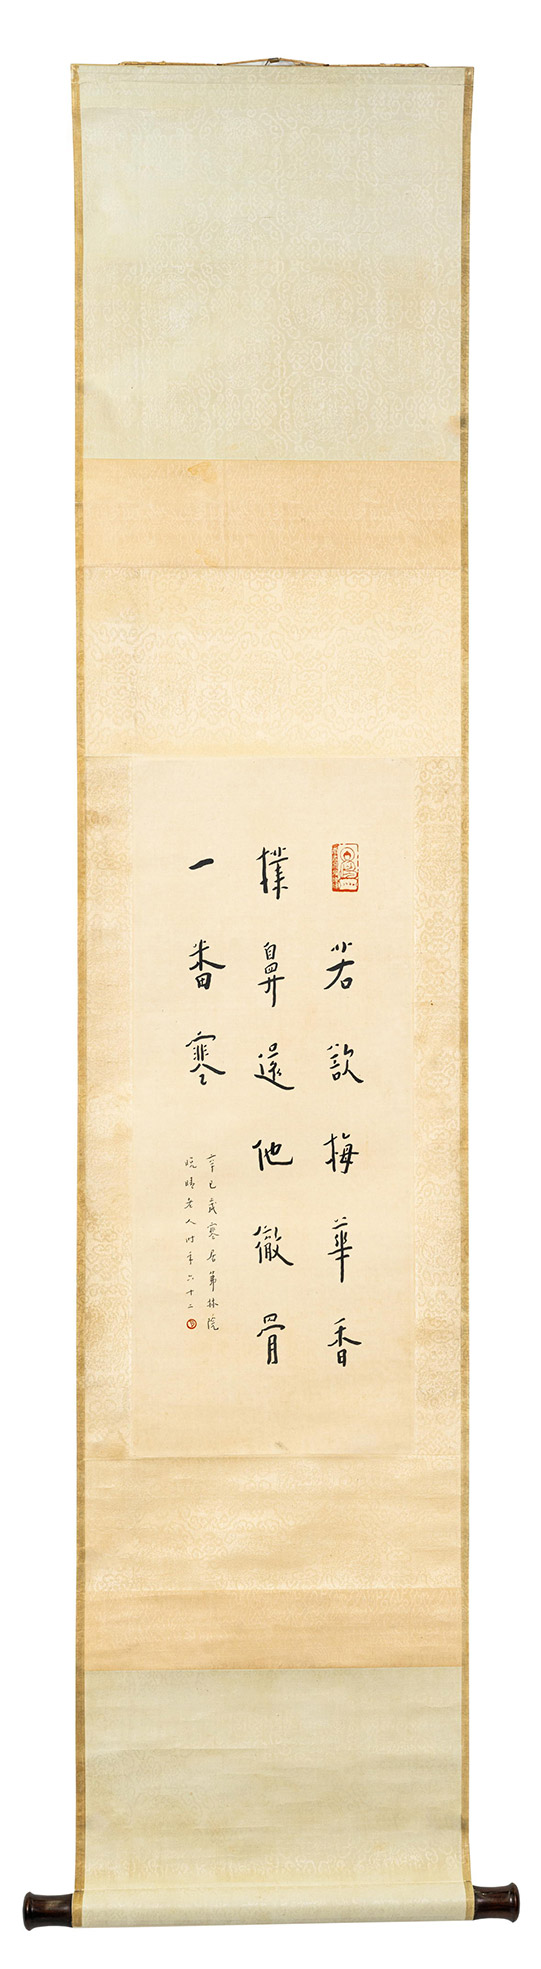 若欲梅華香
撲鼻還他徹骨
一番寒
辛巳歲寒居第林院
晚晴老人時年六十二